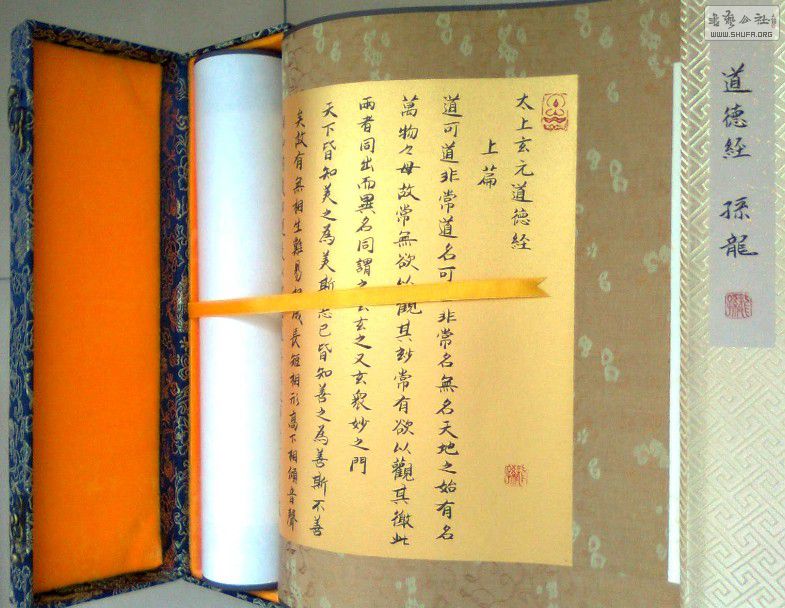 太上玄元道德经
上篇
道可道非常道名可非常名無名天地之始有名
萬物々母故常無欲以觀其玅常有欲以觀其徼此
兩者同出而異名同謂玄之又玄眾妙之門
天下皆知美之為美斯已皆知善之為善斯不善
矣故有無相生難易成長短相形高下相傾音聲
道德经 孫龍
书艺公社
WWW.SHUFA.ORG